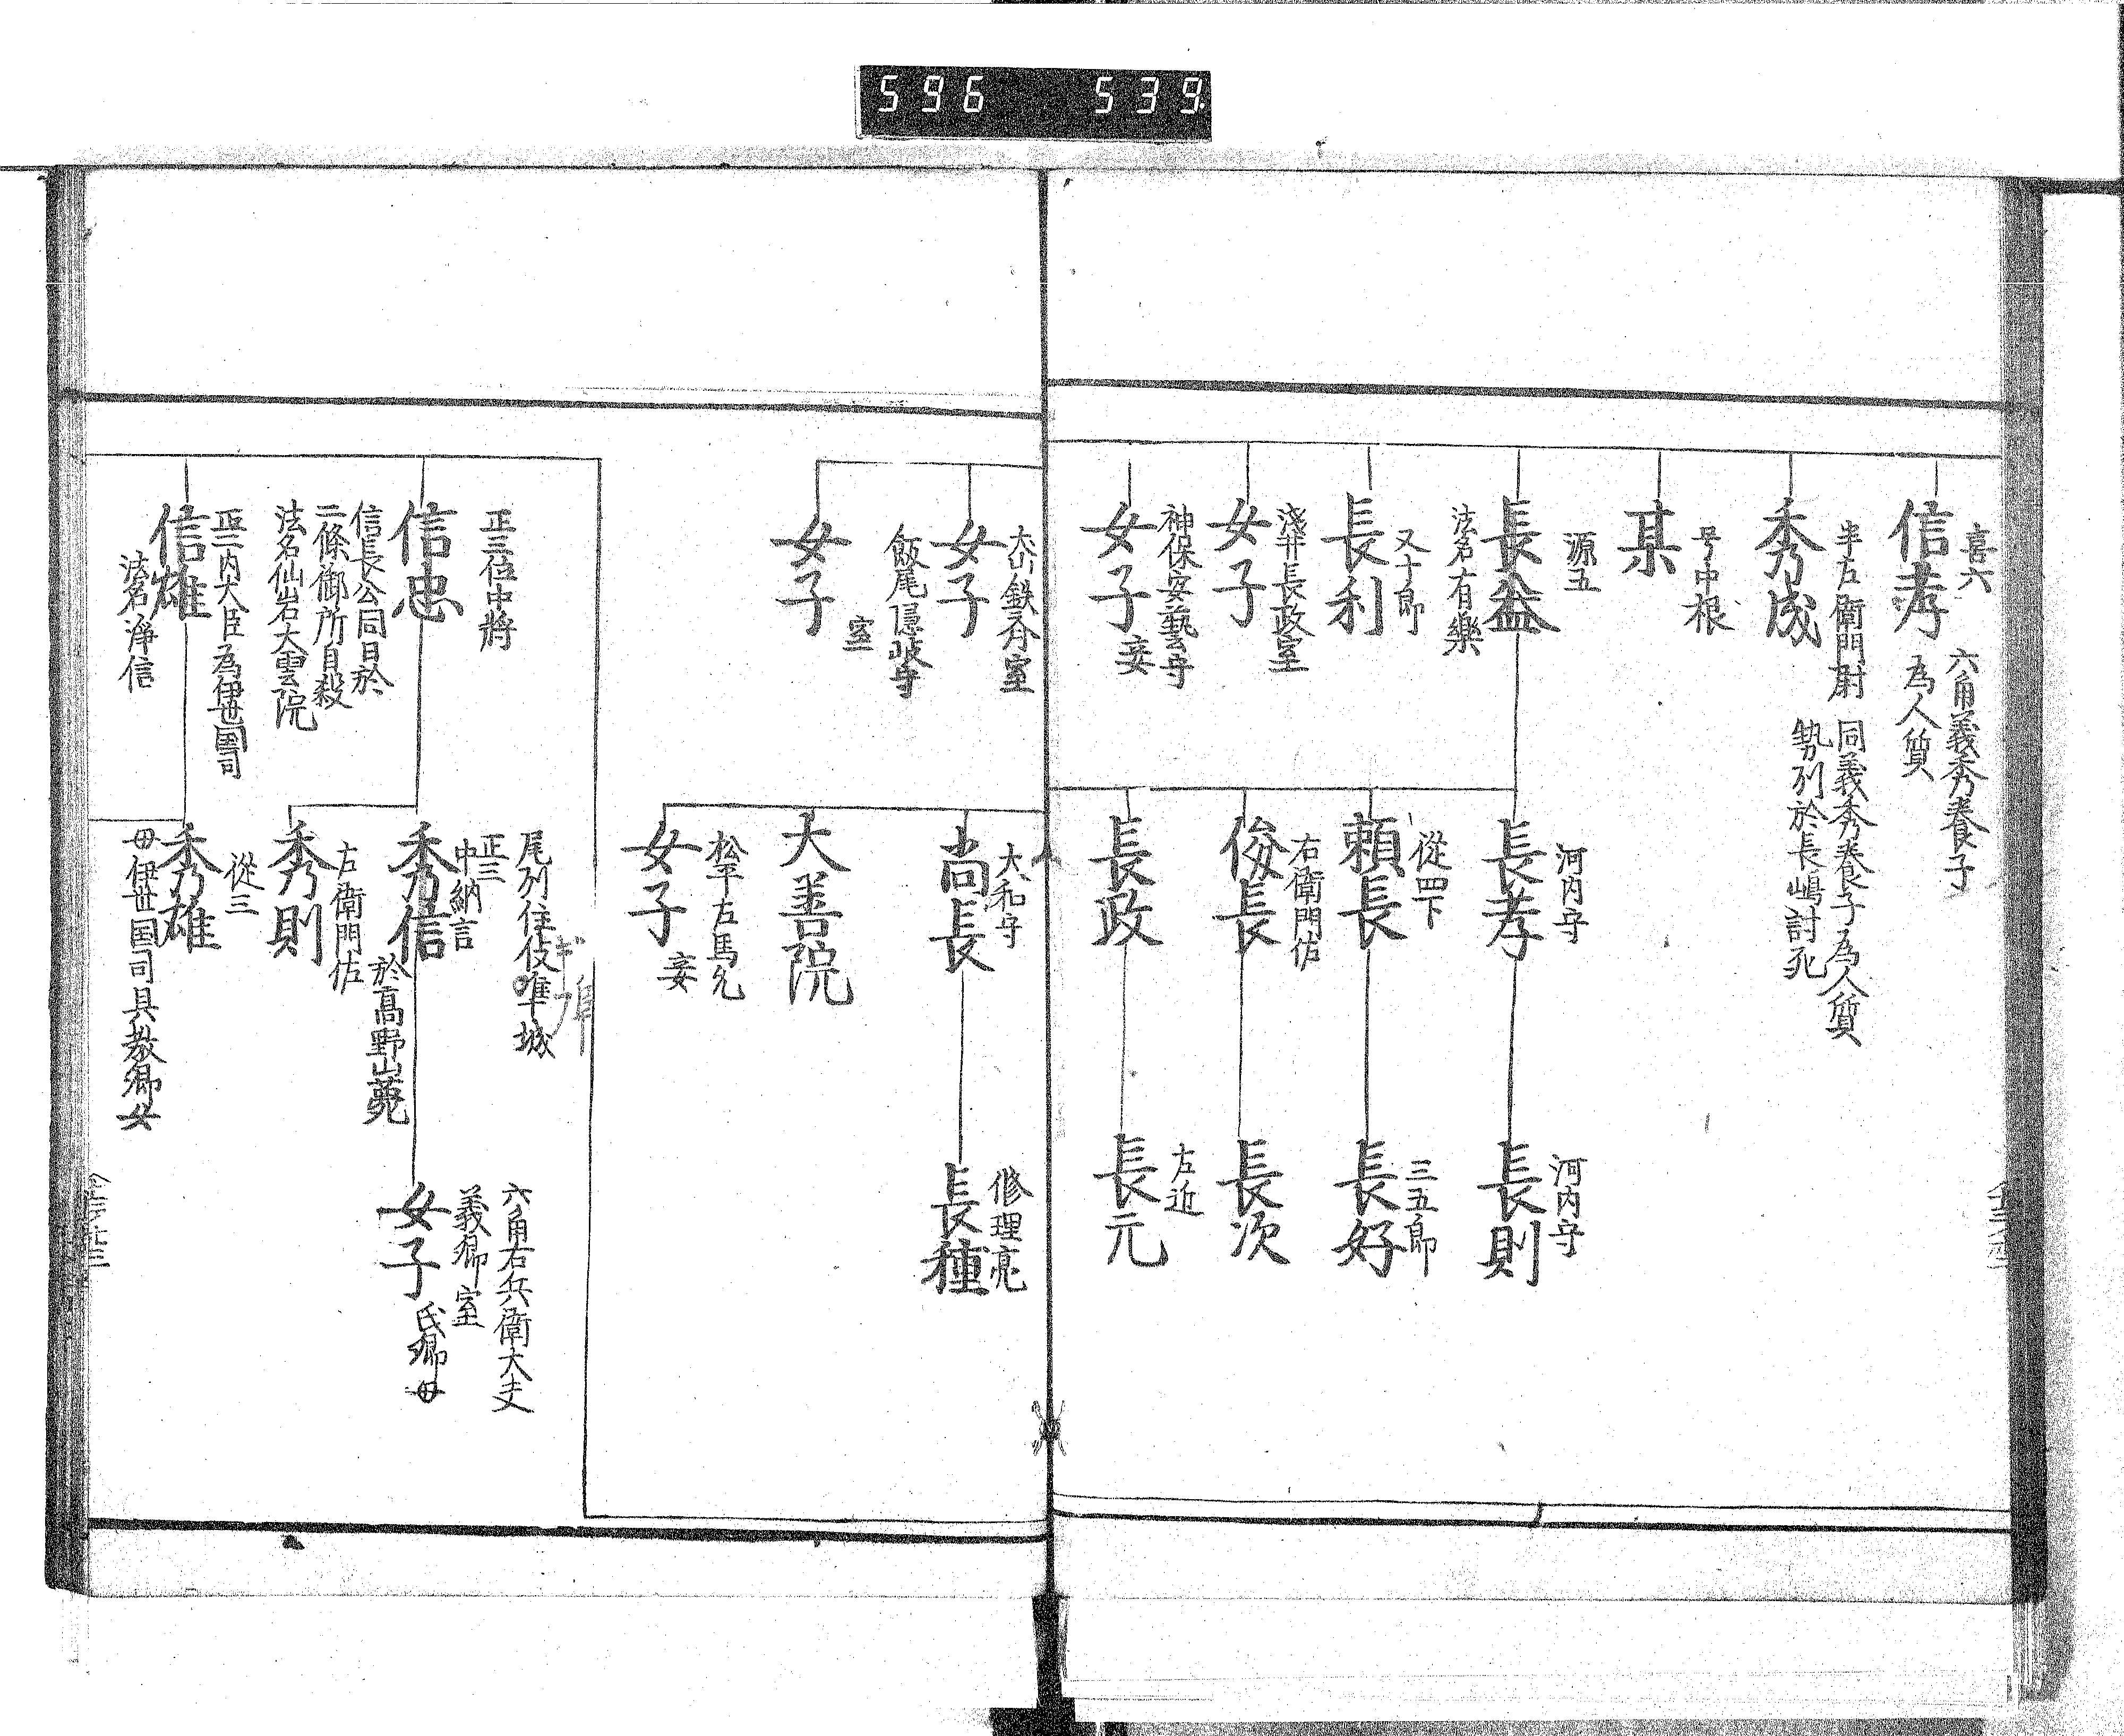 596 539
喜六
信孝
六角義秀養子
為人質
半左衛門尉
秀成
同義秀養子為人質
勢刕於長嶋討死
号中根
某
源五
長益
法名有樂
又十郎
長利
淺井長政室
女子
神保安藝守
女子
妾
河内守
長孝
從四下
頼長
右衛門佐
俊長
長政
河内守
長則
三五郎
長好
長次
左近
長元
女子
室
飯尾隠岐守
室
女子
大和守
尚長
大善院
松平左馬允
女子
妾
修理亮
長種
正三位中將
信忠
信長公同日於
二條御所自殺
法名仙岩大雲院
正二内大臣為伊世国司
信雄
法名淨信
正三
中納言
秀信
於高野山薨
左衛門佐
秀則
從三
秀雄
母伊世国司具教卿女
六角右兵衛大夫
義卿室
女子
氏卿母